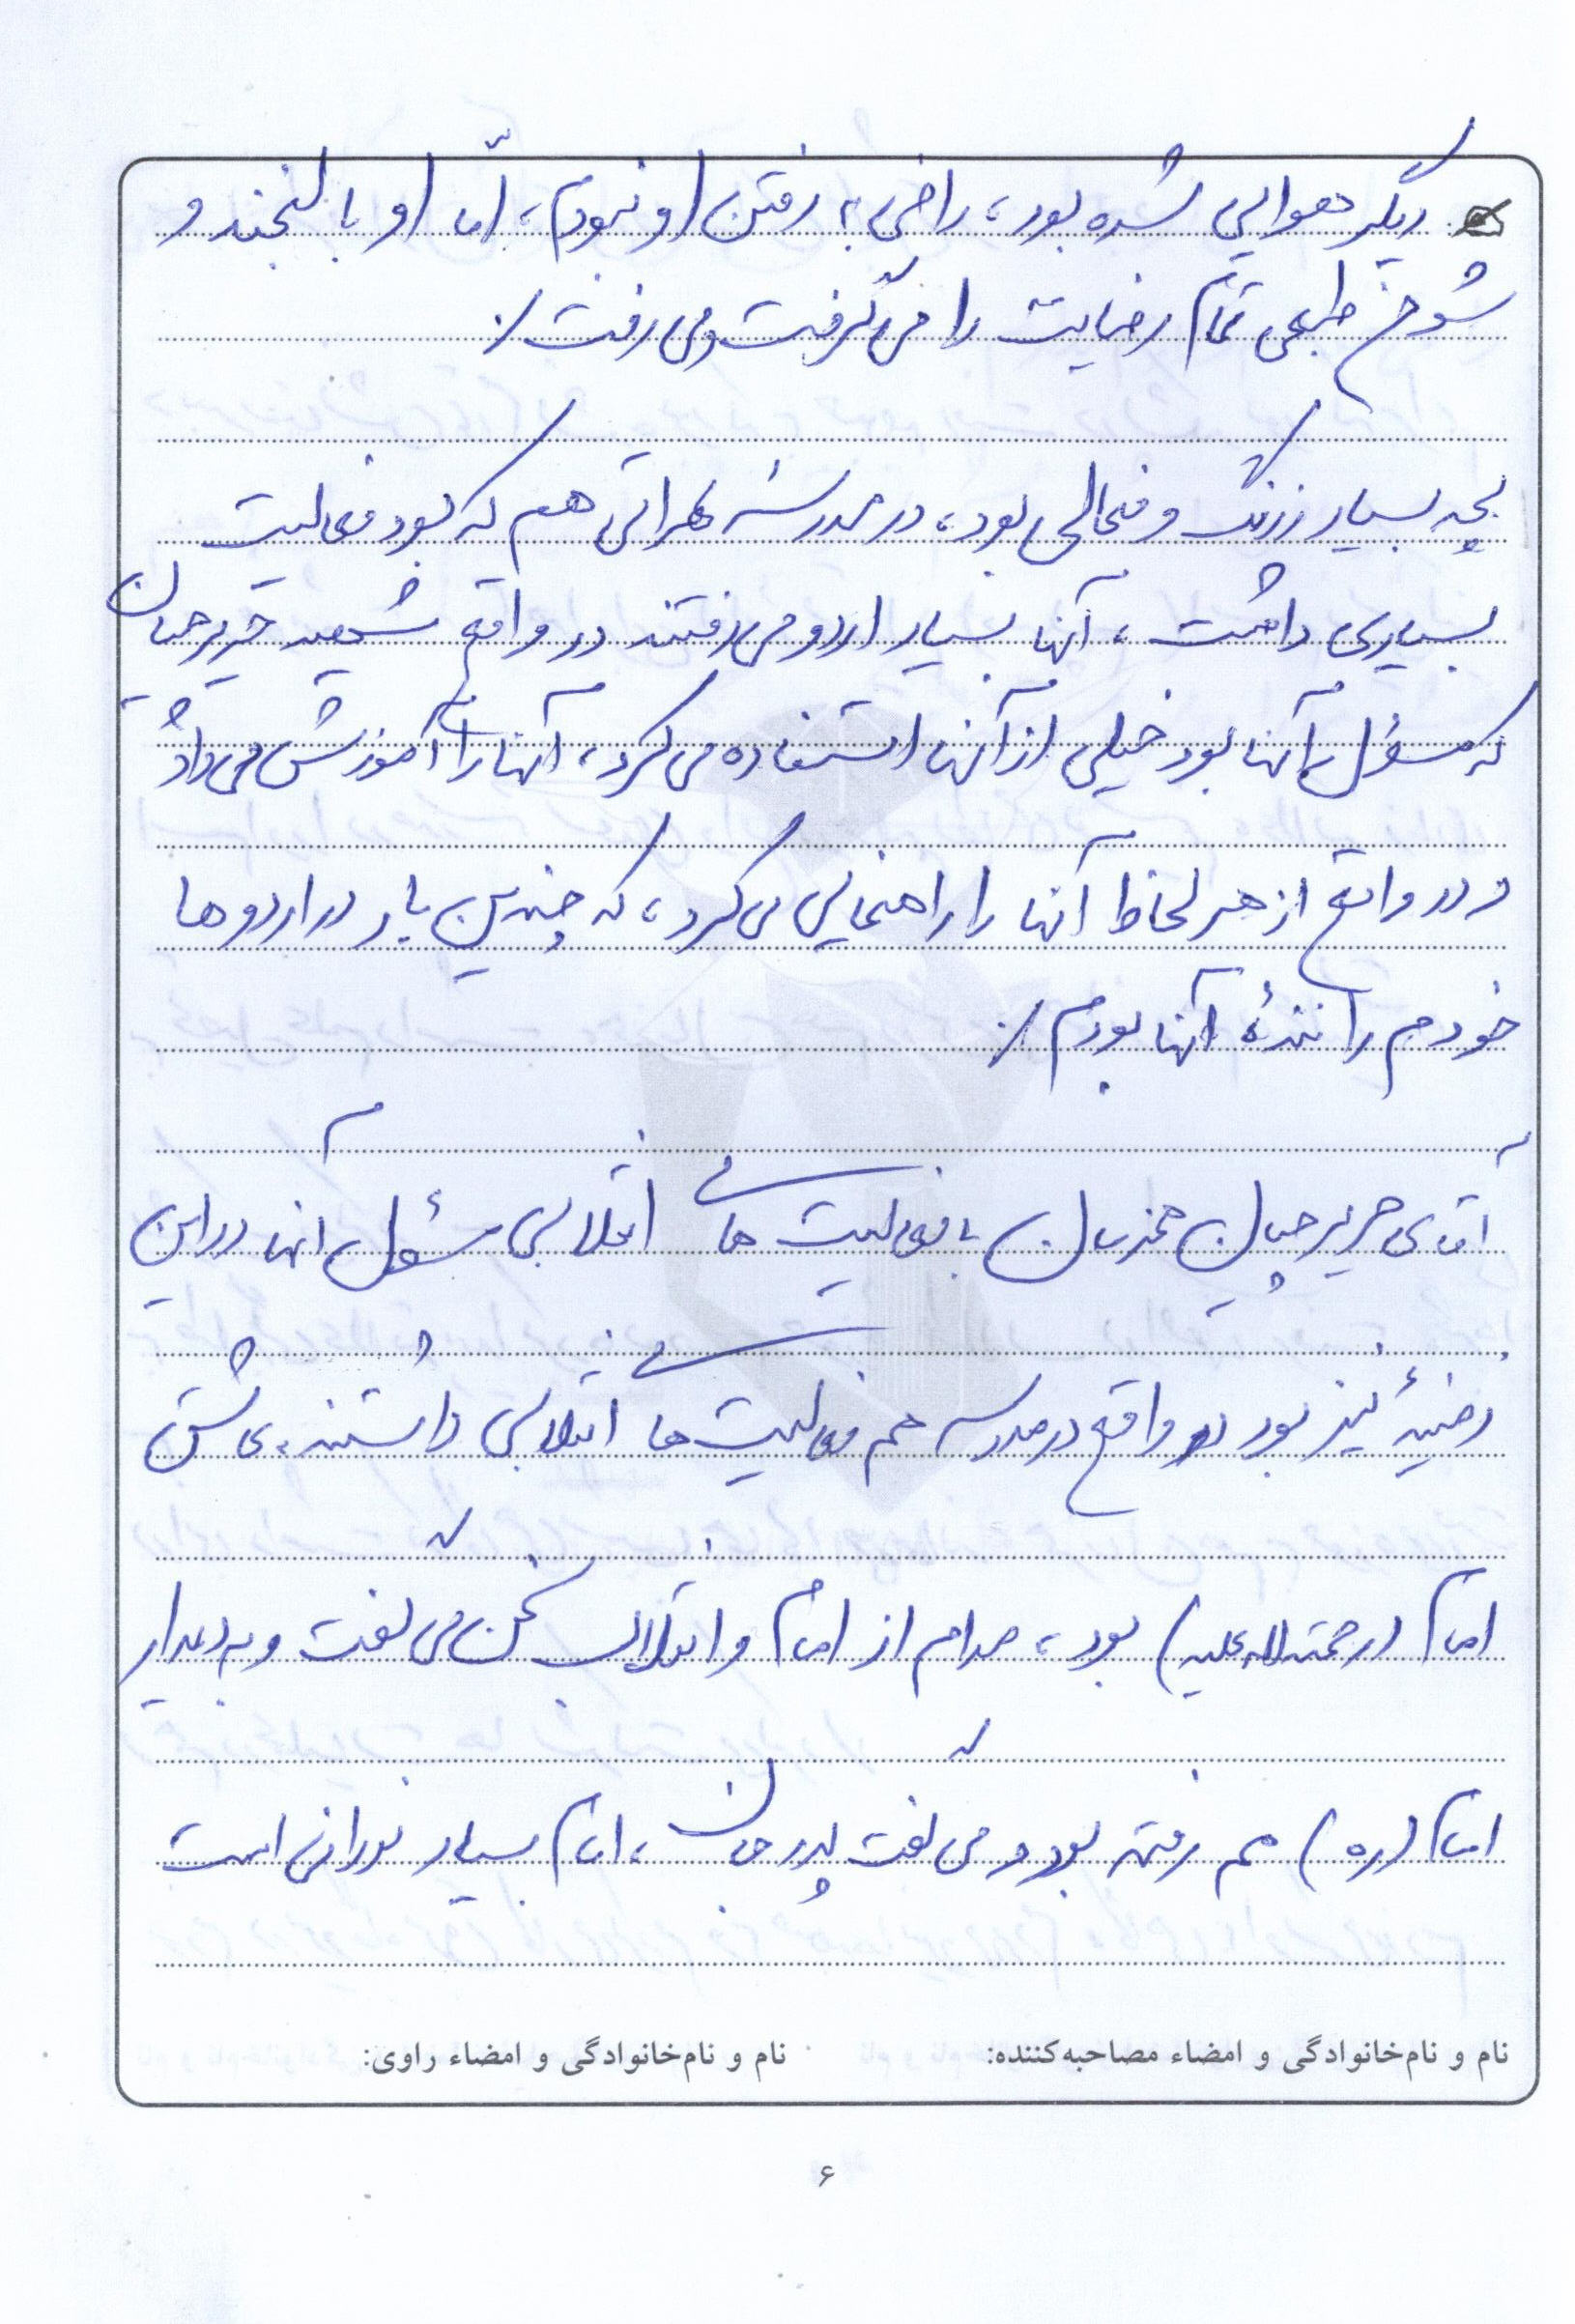 دیگر هوایی شده بود، راضی به رفتن او نبودم، امّا او با لبخند و
شوخ طبعی تمام رضایت را می‌گرفت و می رفت./
بچه بسیار زرنگ و فعالی بود، در مدرسه تهرانی هم که بود فعالیت
بسیاری داشت، آنها بسیار اردو می‌رفتند در واقع شهید حریرچیان
که مسئول آنها بود خیلی از آنها استفاده می کرد، آنها را آموزش می داد
و در واقع از هر لحاظ آنها را راهنمایی می کرد، که چندین بار در اردوها
خودم رانندۀ آنها بودم./
آقای حریرچیان همزمان با فعالیت های انقلابی مسئول آنها در این
زمینۀ نیز بود در واقع در مدرسه هم فعالیت های انقلابی داشتند. عاشق
امام (رحمته الله علیه) بود، مدام از امام و انقلاب سخن می گفت و به دیدار
امام (ره) هم رفته بود و می گفت پدر جان، امام بسیار نورانی است
نام و نام‌خانوادگی و امضاء مصاحبه‌کننده: نام و نام‌خانوادگی و امضاء راوی:
۶